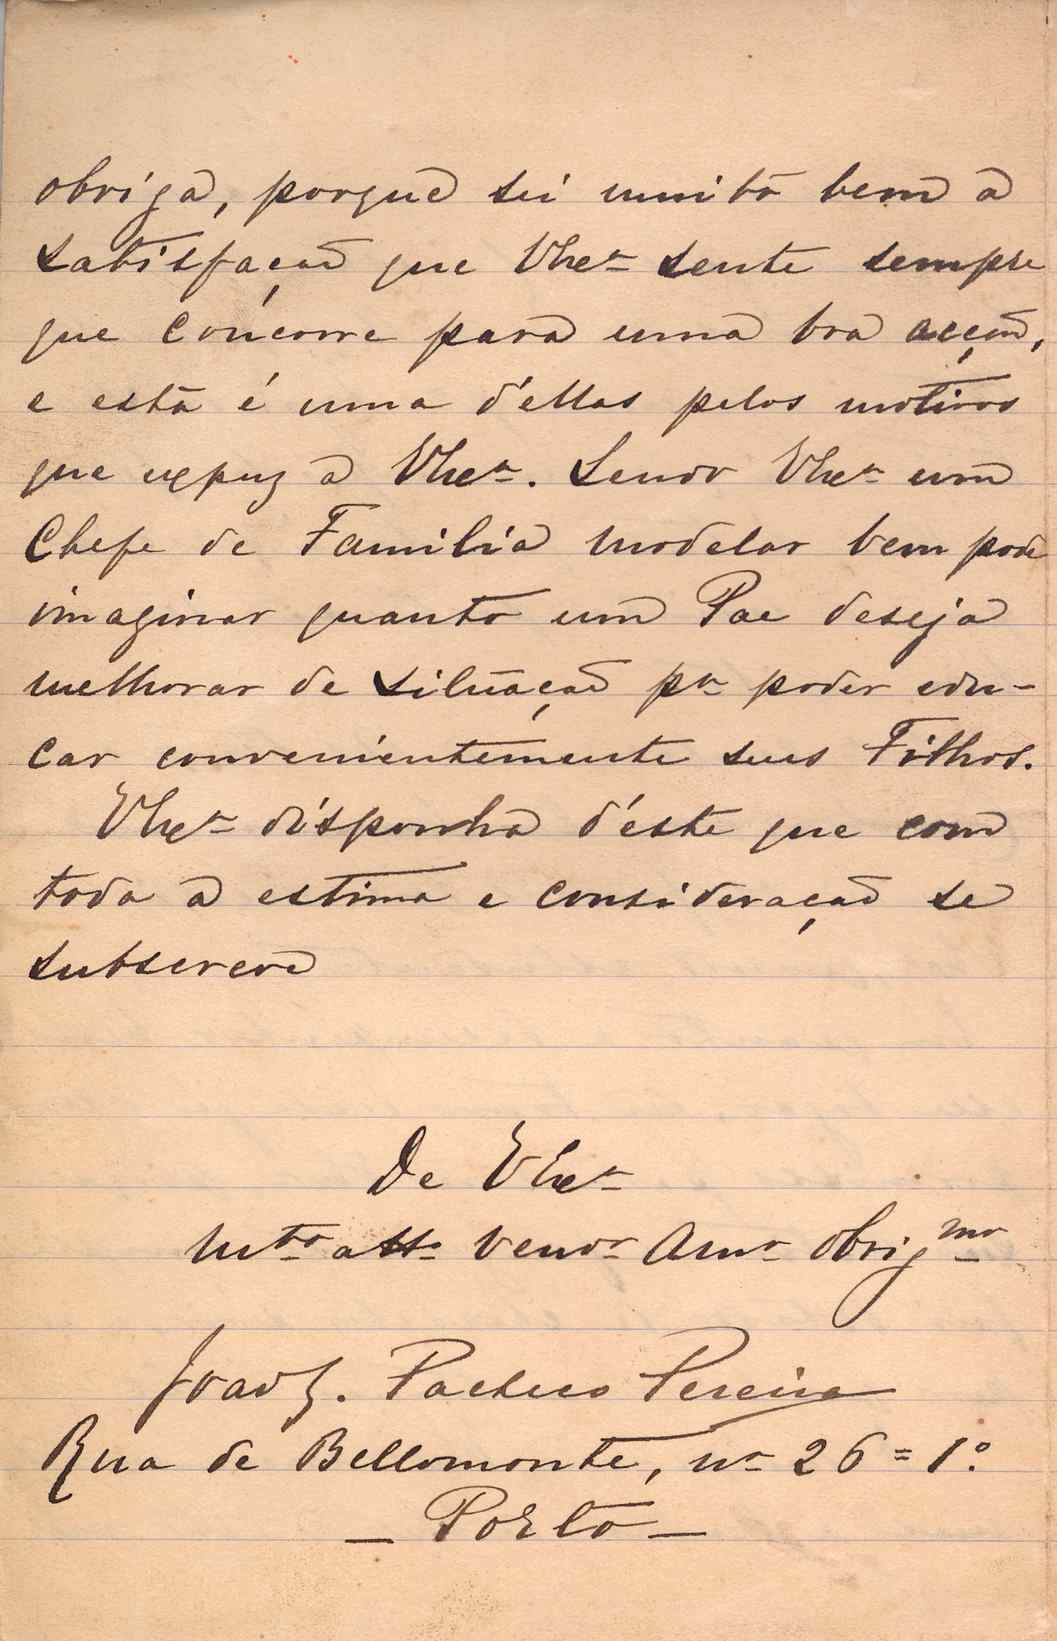 obriga, porque sei muito bem a
satisfação que V.Exª sente sempre
que concorre para uma boa acção,
e esta é uma d'ellas pelos motivos
que expuz a V.Exª. Sendo V.Exª um
Chefe de Familia modelar bem pode
imaginar quanto um Pae deseja
melhorar de situação pª poder edu-
car convenientemente seus Filhos.
V.Exª disponha d'éste que com
toda a estima e consideração se
subscreve
De V.Exª
Mto atto venor Amo obrigmo
João J. Pacheco Pereira
Rua de Bellomonte, nº 26 = 1º
— Porto —